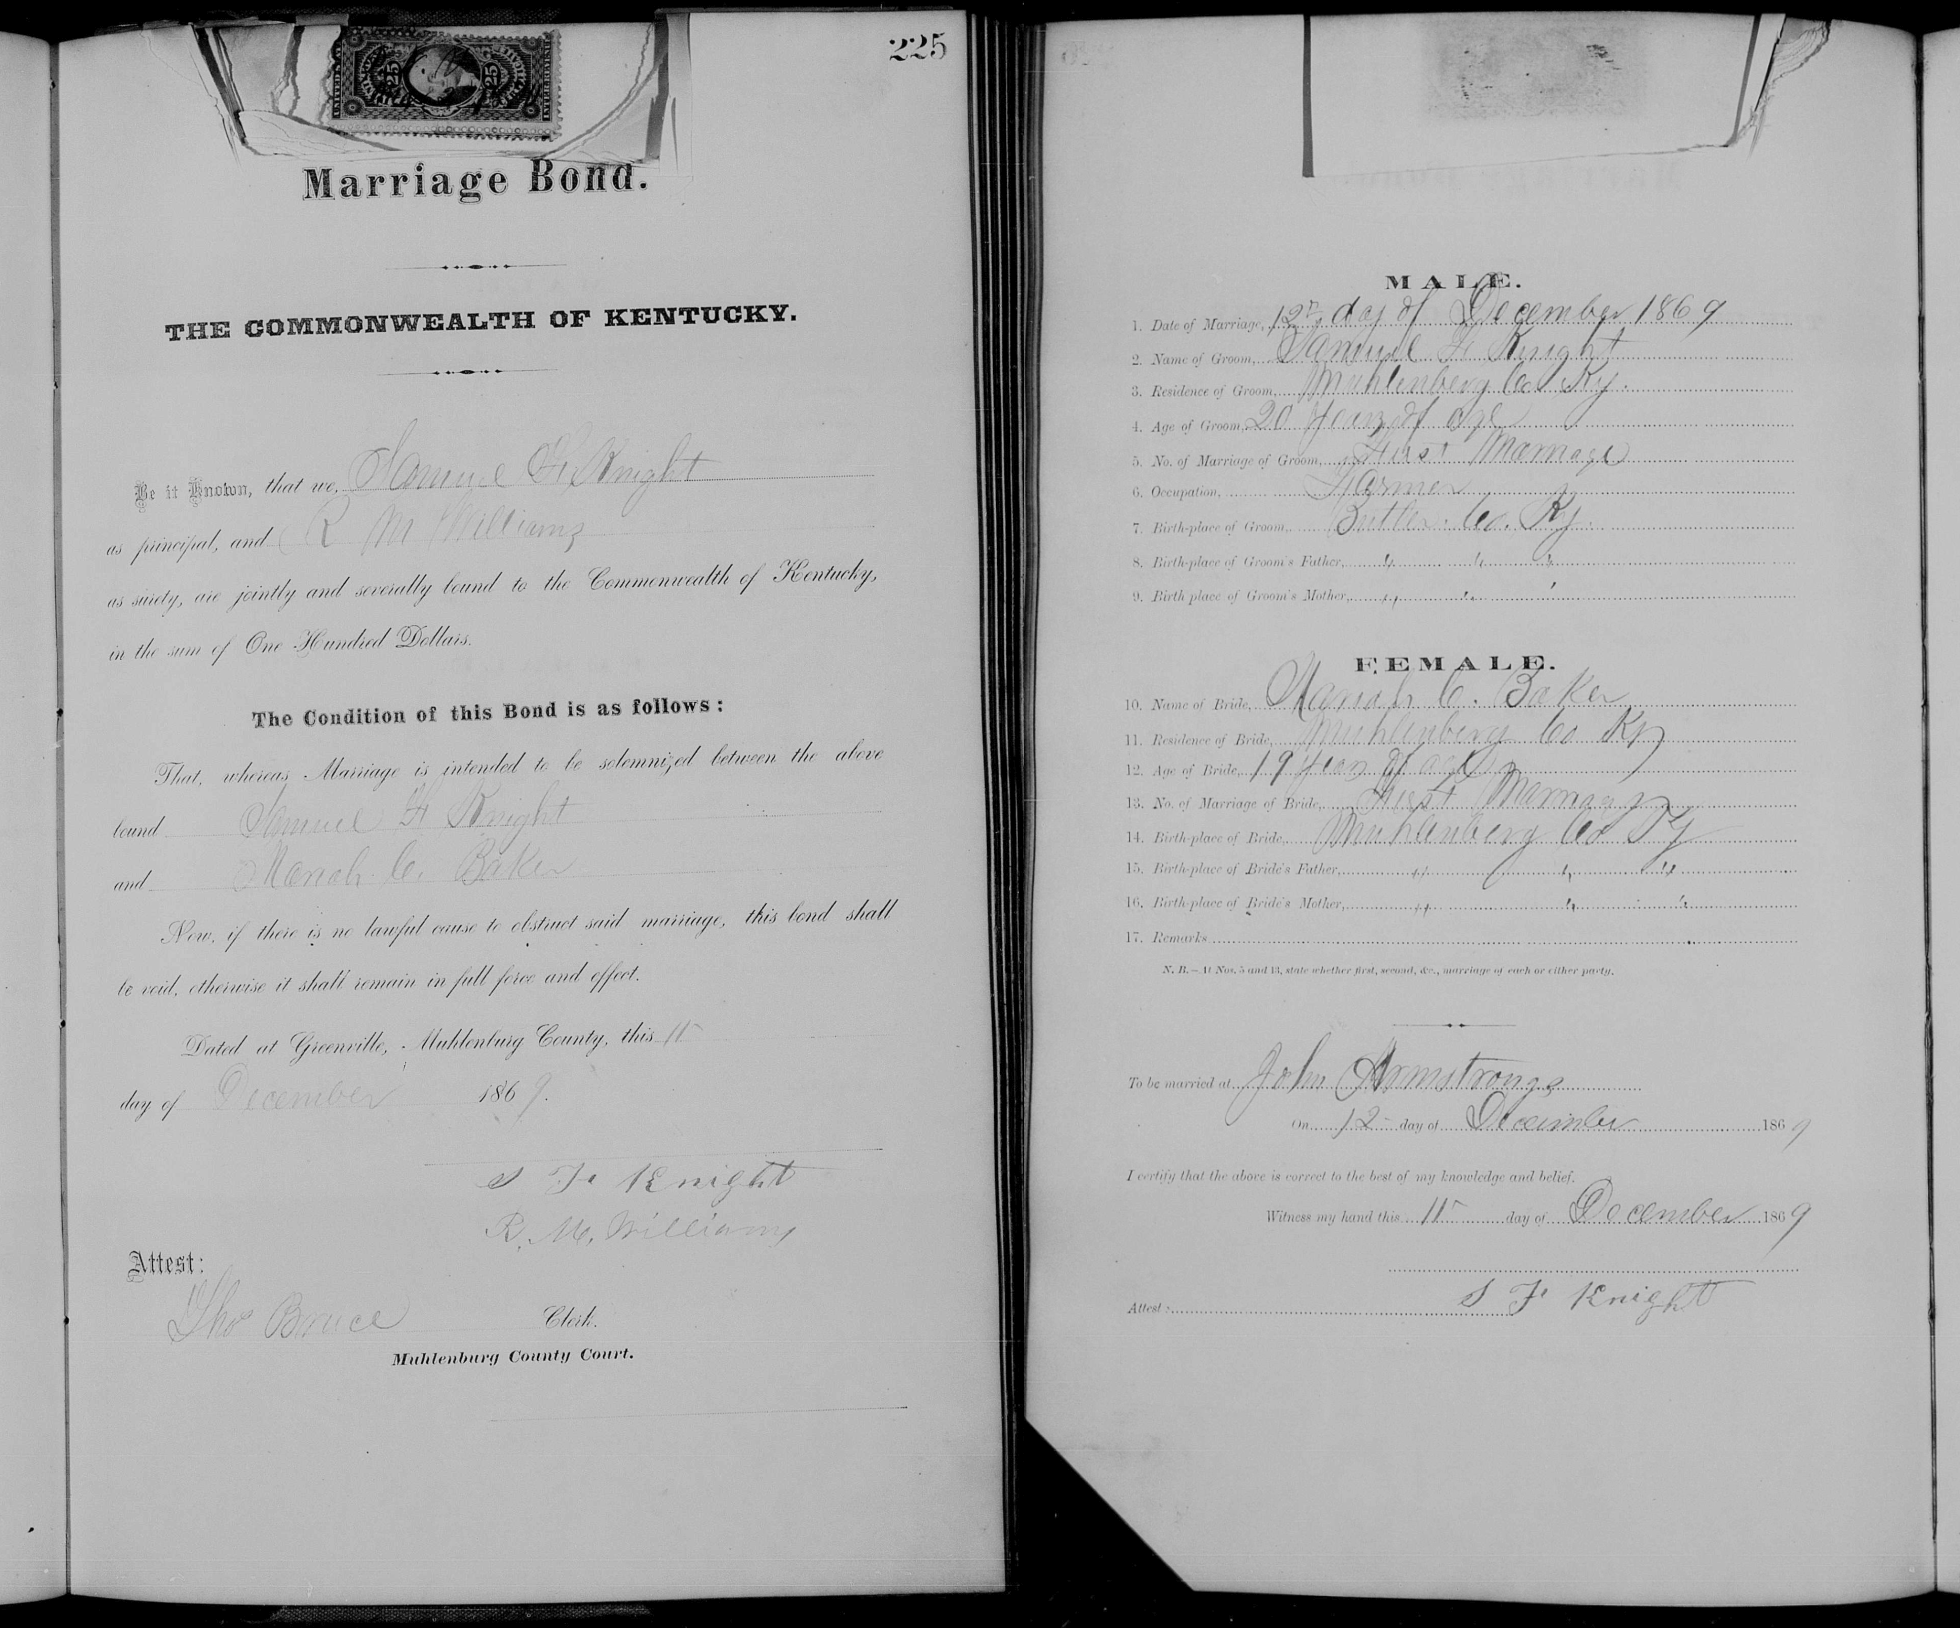 225
25 25
Marriage Bond.
THE COMMONWEALTH OF KENTUCKY.
Be it Known, that we, Samuel F. Knight
as principal, and R M Williams
as surety, are jointly and severally bound to the Commonwealth of Kentucky,
in the sum of One Hundred Dollars.
The Condition of this Bond is as follows:
That, whereas Marriage is intended to be solemnized between the above
bound Samuel F Knight
and Mariah C. Baker
Now, if there is no lawful cause to obstruct said marriage, this bond shall
be void, otherwise it shall remain in full force and effect.
Dated at Greenville, Muhlenburg County, this 11
day of December 1869.
S F. Knight
R. M. Williams
Attest:
Thos Bruce Clerk.
Muhlenburg County Court.
MALE.
1. Date of Marriage, 12 day of December 1869
2. Name of Groom, Samuel F. Knight
3. Residence of Groom, Muhlenberg Co Ky.
4. Age of Groom, 20 years of age
5. No. of Marriage of Groom, First Marriage
6. Occupation, Farmer
7. Birth-place of Groom, Butler Co. Ky.
8. Birth-place of Groom's Father, " " "
9. Birth place of Groom's Mother, " " "
FEMALE.
10. Name of Bride, Mariah C. Baker
11. Residence of Bride, Muhlenberg Co Ky
12. Age of Bride, 19 years of age
13. No. of Marriage of Bride, First Marriage
14. Birth-place of Bride, Muhlenberg Co Ky
15. Birth-place of Bride's Father, " " "
16. Birth-place of Bride's Mother, " " "
17. Remarks
N. B.—At Nos. 5 and 13, state whether first, second, &c., marriage of each or either party.
To be married at John Armstrongs
On 12 day of December 1869
I certify that the above is correct to the best of my knowledge and belief.
Witness my hand this 11 day of December 1869
S F. Knight
Attest: